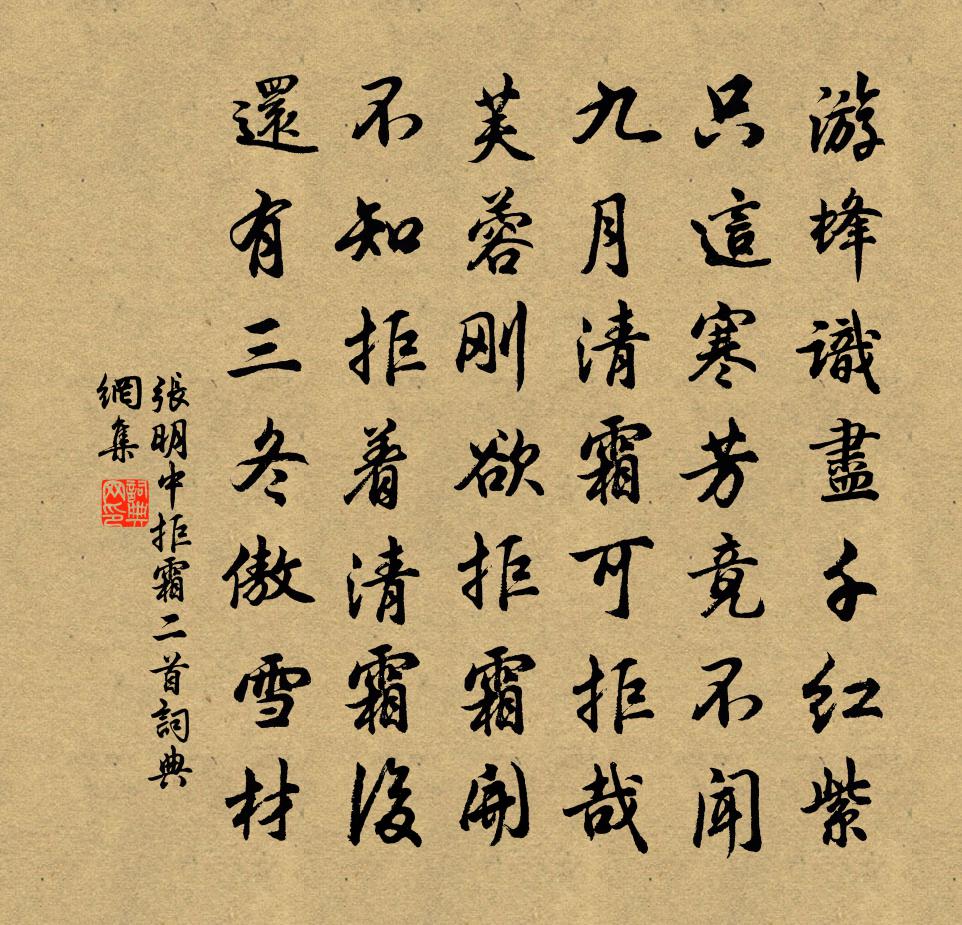 游蜂識盡千红紫
只這寒芳竟不聞
九月清霜可拒哉
芙蓉刚欲拒霜開
不知拒着清霜後
還有三冬傲雪材
張明中拒霜二首詞典
網集
詞典
网印